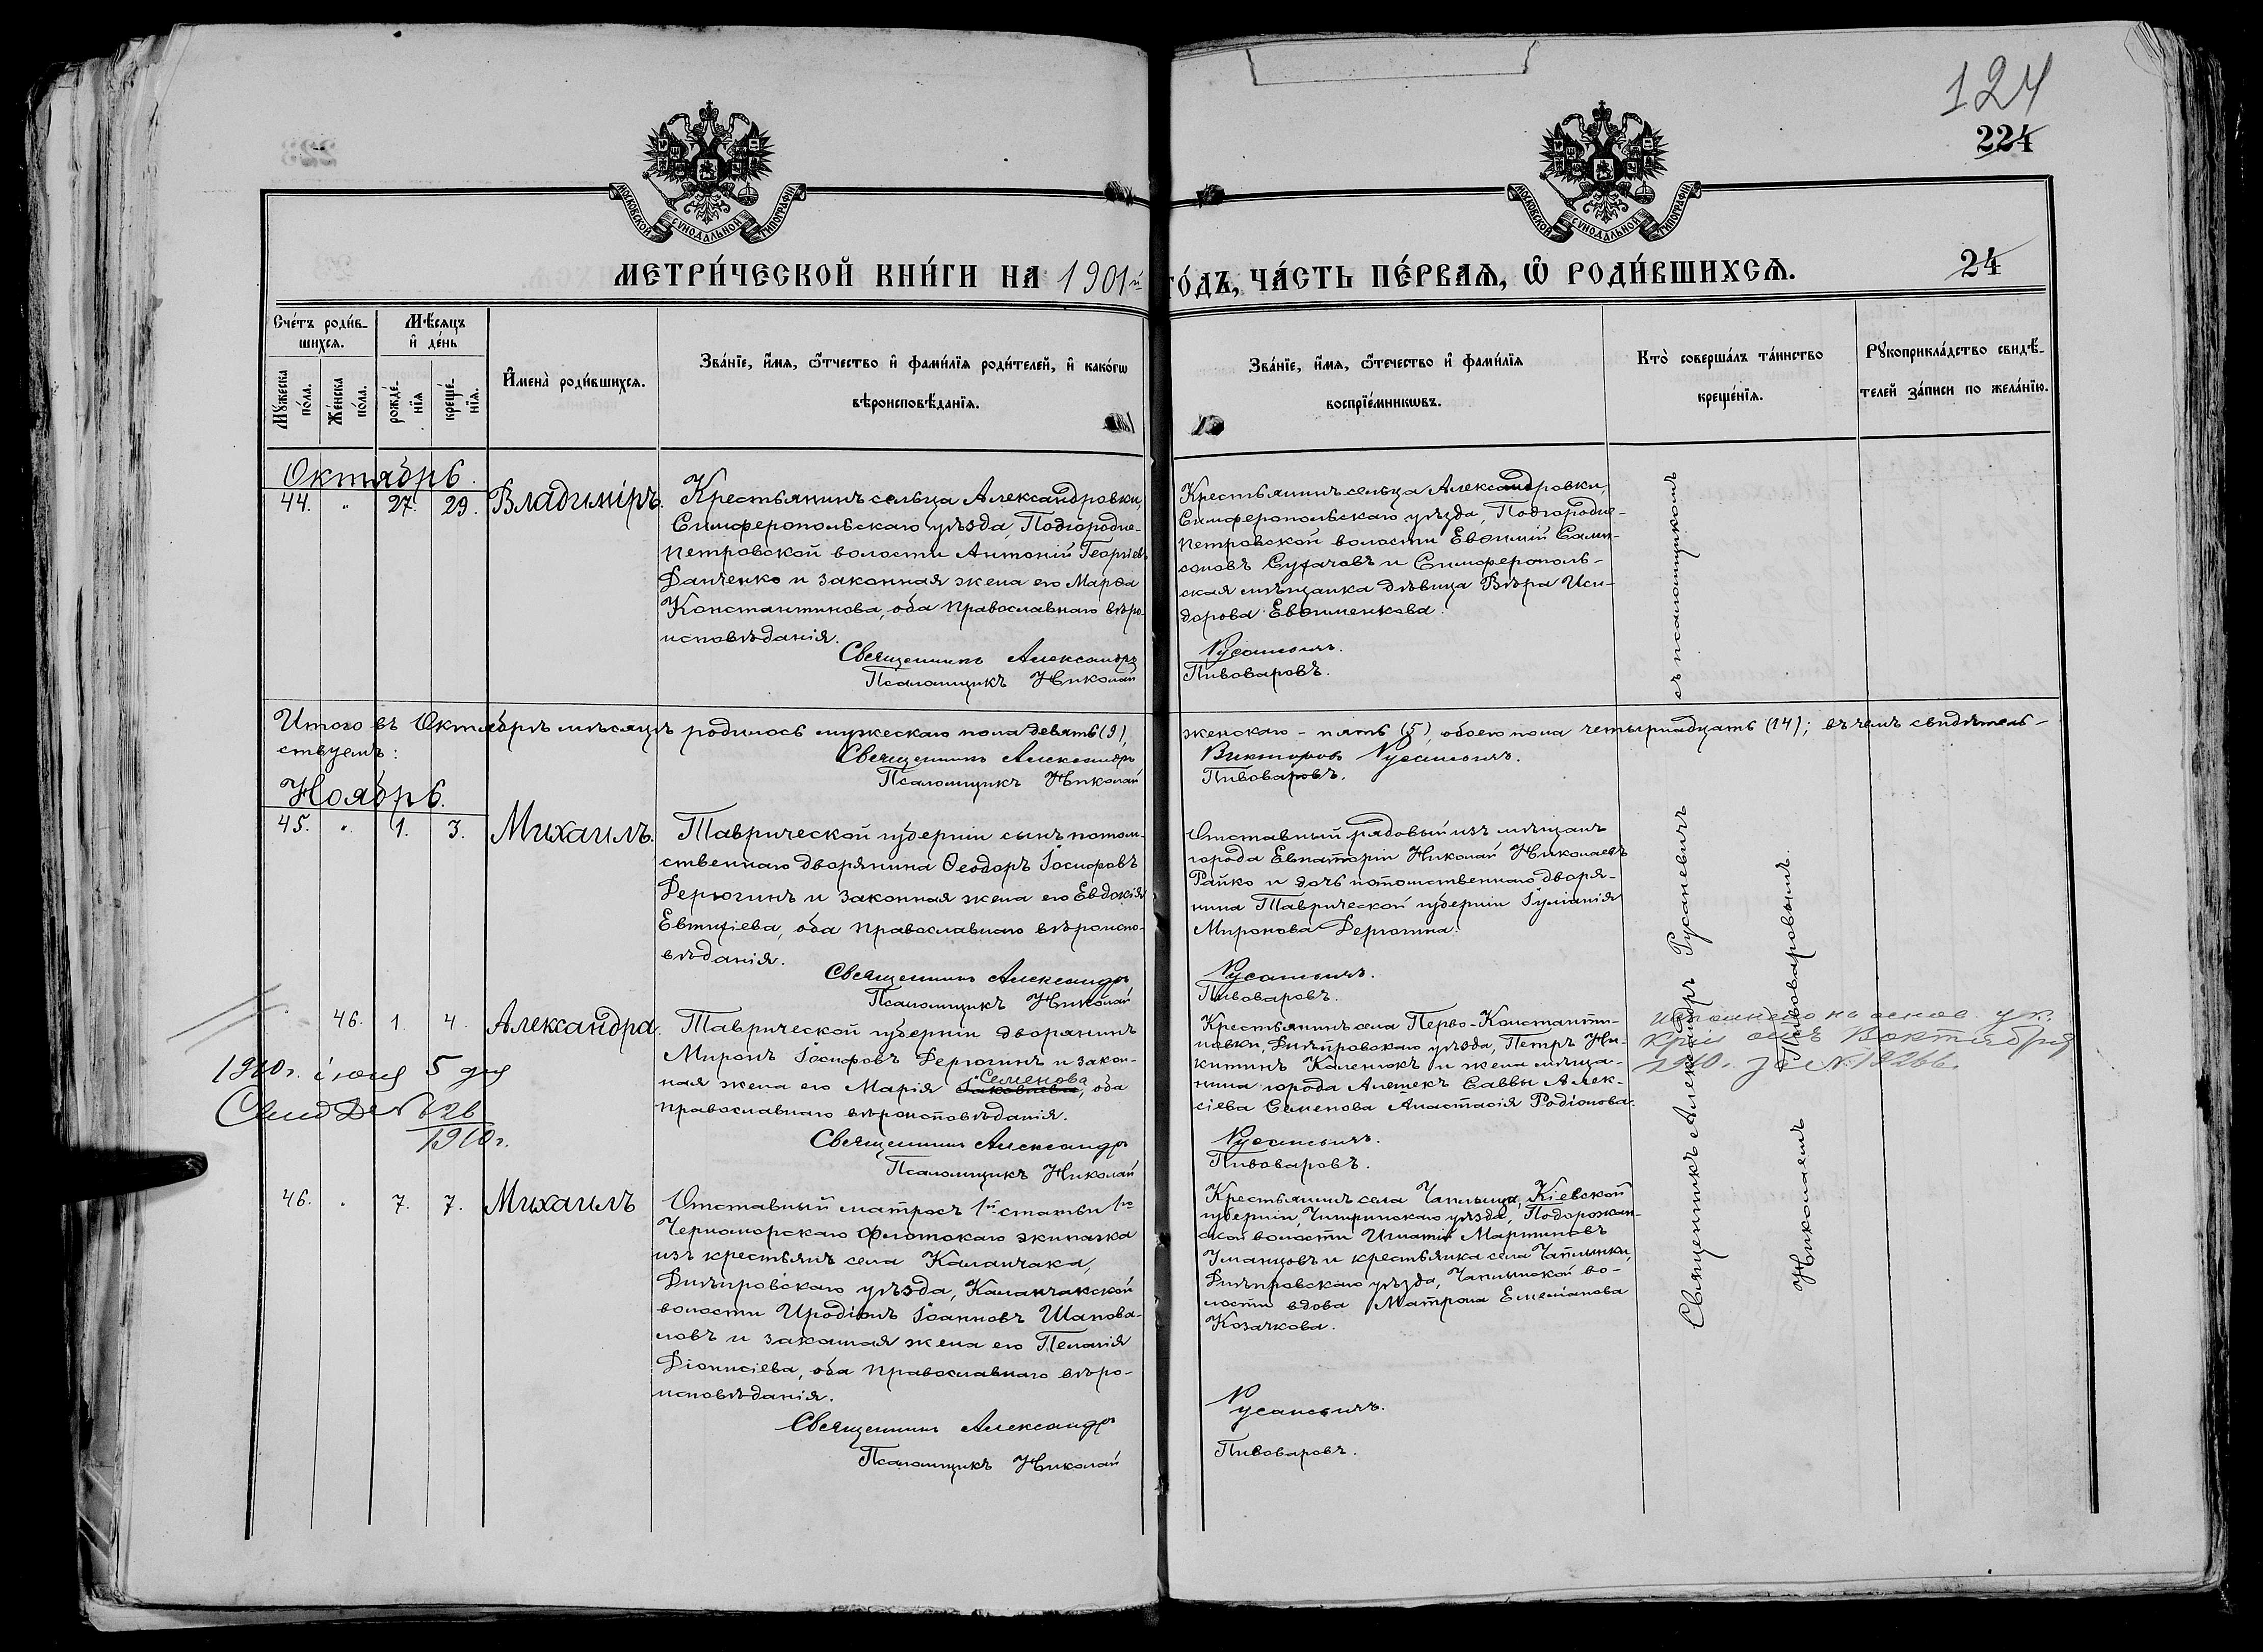 124
224
МОСКОВСКОЙ СѴНОДАЛЬНОЙ ТИПОГРАФІИ
МОСКОВСКОЙ СѴНОДАЛЬНОЙ ТИПОГРАФІИ
МЕТРИ́ЧЕСКОЙ КНИ́ГИ НА 1901й ГО́ДЪ, ЧА́СТЬ ПЕ́РВАѦ, Ѡ҆ РОДИ́ВШИХСѦ.
24
Сче́тъ роди́в-
шихсѧ.
Мѣ́сѧцъ
и҆ де́нь
Мꙋ́жеска
по́ла.
Же́нска
по́ла.
рожде́-
нїѧ
креще́-
нїѧ.
И҆мена̀ роди́вшихсѧ.
Зва́нїе, и҆́мѧ, ѻ҆́тчество и҆ фами́лїѧ роди́телей, и҆ како́гѡ
вѣроисповѣ́данїѧ.
Зва́нїе, и҆́мѧ, ѻ҆́течество и҆ фами́лїѧ
воспрїе́мникѡвъ.
Кто̀ соверша́лъ та́инство
креще́нїѧ.
Рꙋкоприкла́дство свидѣ́-
телей за́писи по жела́нїю.
Октябрь.
44. " 27. 29. Владиміръ.
Крестьянинъ сельца Александровки,
Симферопольскаго уѣзда, Подгородне-
Петровской волости Антоній Георгіевъ
Данченко и законная жена его Марѳа
Константинова, оба православнаго вѣро-
исповѣданія.
Священникъ Александръ
Псаломщикъ Николай
Крестьянинъ сельца Александровки,
Симферопольскаго уѣзда, Подгородне-
Петровской волости Евѳимій Самп-
соновъ Сугачовъ и Симферополь-
ская мѣщанка дѣвица Вѣра Иси-
дорова Евѳименкова.
Русаневичъ.
Пивоваровъ.
Итого въ Октябрѣ мѣсяцѣ родилось мужескаго пола девять (9), женскаго - пять (5), обоего пола четырнадцать (14); въ чемъ свидѣтель-
ствуемъ:
Священникъ Александръ Викторовъ Русаневичъ.
Псаломщикъ Николай Пивоваровъ.
Ноябрь.
45. " 1. 3. Михаилъ.
Таврической губерніи сынъ потом-
ственнаго дворянина Ѳеодоръ Іосифовъ
Дерюгинъ и законная жена его Евдокія
Евтихіева, оба православнаго вѣроиспо-
вѣданія.
Священникъ Александръ
Псаломщикъ Николай
Отставный рядовый изъ мѣщанъ
города Евпаторіи Николай Николаевъ
Райко и дочь потомственнаго дворя-
нина Таврической губерніи Іуліанія
Миронова Дерюгина.
Русаневичъ.
Пивоваровъ.
46. 1. 4. Александра.
Таврической губерніи дворянинъ
Миронъ Іосифовъ Дерюгинъ и закон-
ная жена его Марія Семенова, оба
православнаго вѣроисповѣданія.
Священникъ Александръ
Псаломщикъ Николай
1910 г. іюня 5 дня
1910 г.
Крестьянинъ села Перво-Константи-
новки, Днѣпровскаго уѣзда, Петръ Ни-
китинъ Каленюкъ и жена мѣща-
нина города Алешекъ Саввы Алек-
сіева Семенова Анастасія Родіонова.
Русаневичъ.
Пивоваровъ.
46. " 7. 7. Михаилъ
Отставный матросъ 1й статьи 1го
Черноморскаго флотскаго экипажа
изъ крестьянъ села Каланчака,
Днѣпровскаго уѣзда, Каланчакской
волости Иродіонъ Іоанновъ Шапова-
ловъ и законная жена его Пелагія
Діонисіева, оба православнаго вѣро-
исповѣданія.
Священникъ Александръ
Псаломщикъ Николай
Кіевской
губерніи, Чигиринскаго уѣзда, Подорожан-
ской волости Игнатій Мартиновъ
Уманцовъ и крестьянка села Чаплинки,
Днѣпровскаго уѣзда, Чаплинской во-
лости вдова Матрона Емеліанова
Козачкова.
Русаневичъ.
Пивоваровъ.
Священникъ Александръ Русаневичъ съ псаломщикомъ
Николаемъ Пивоваровымъ.